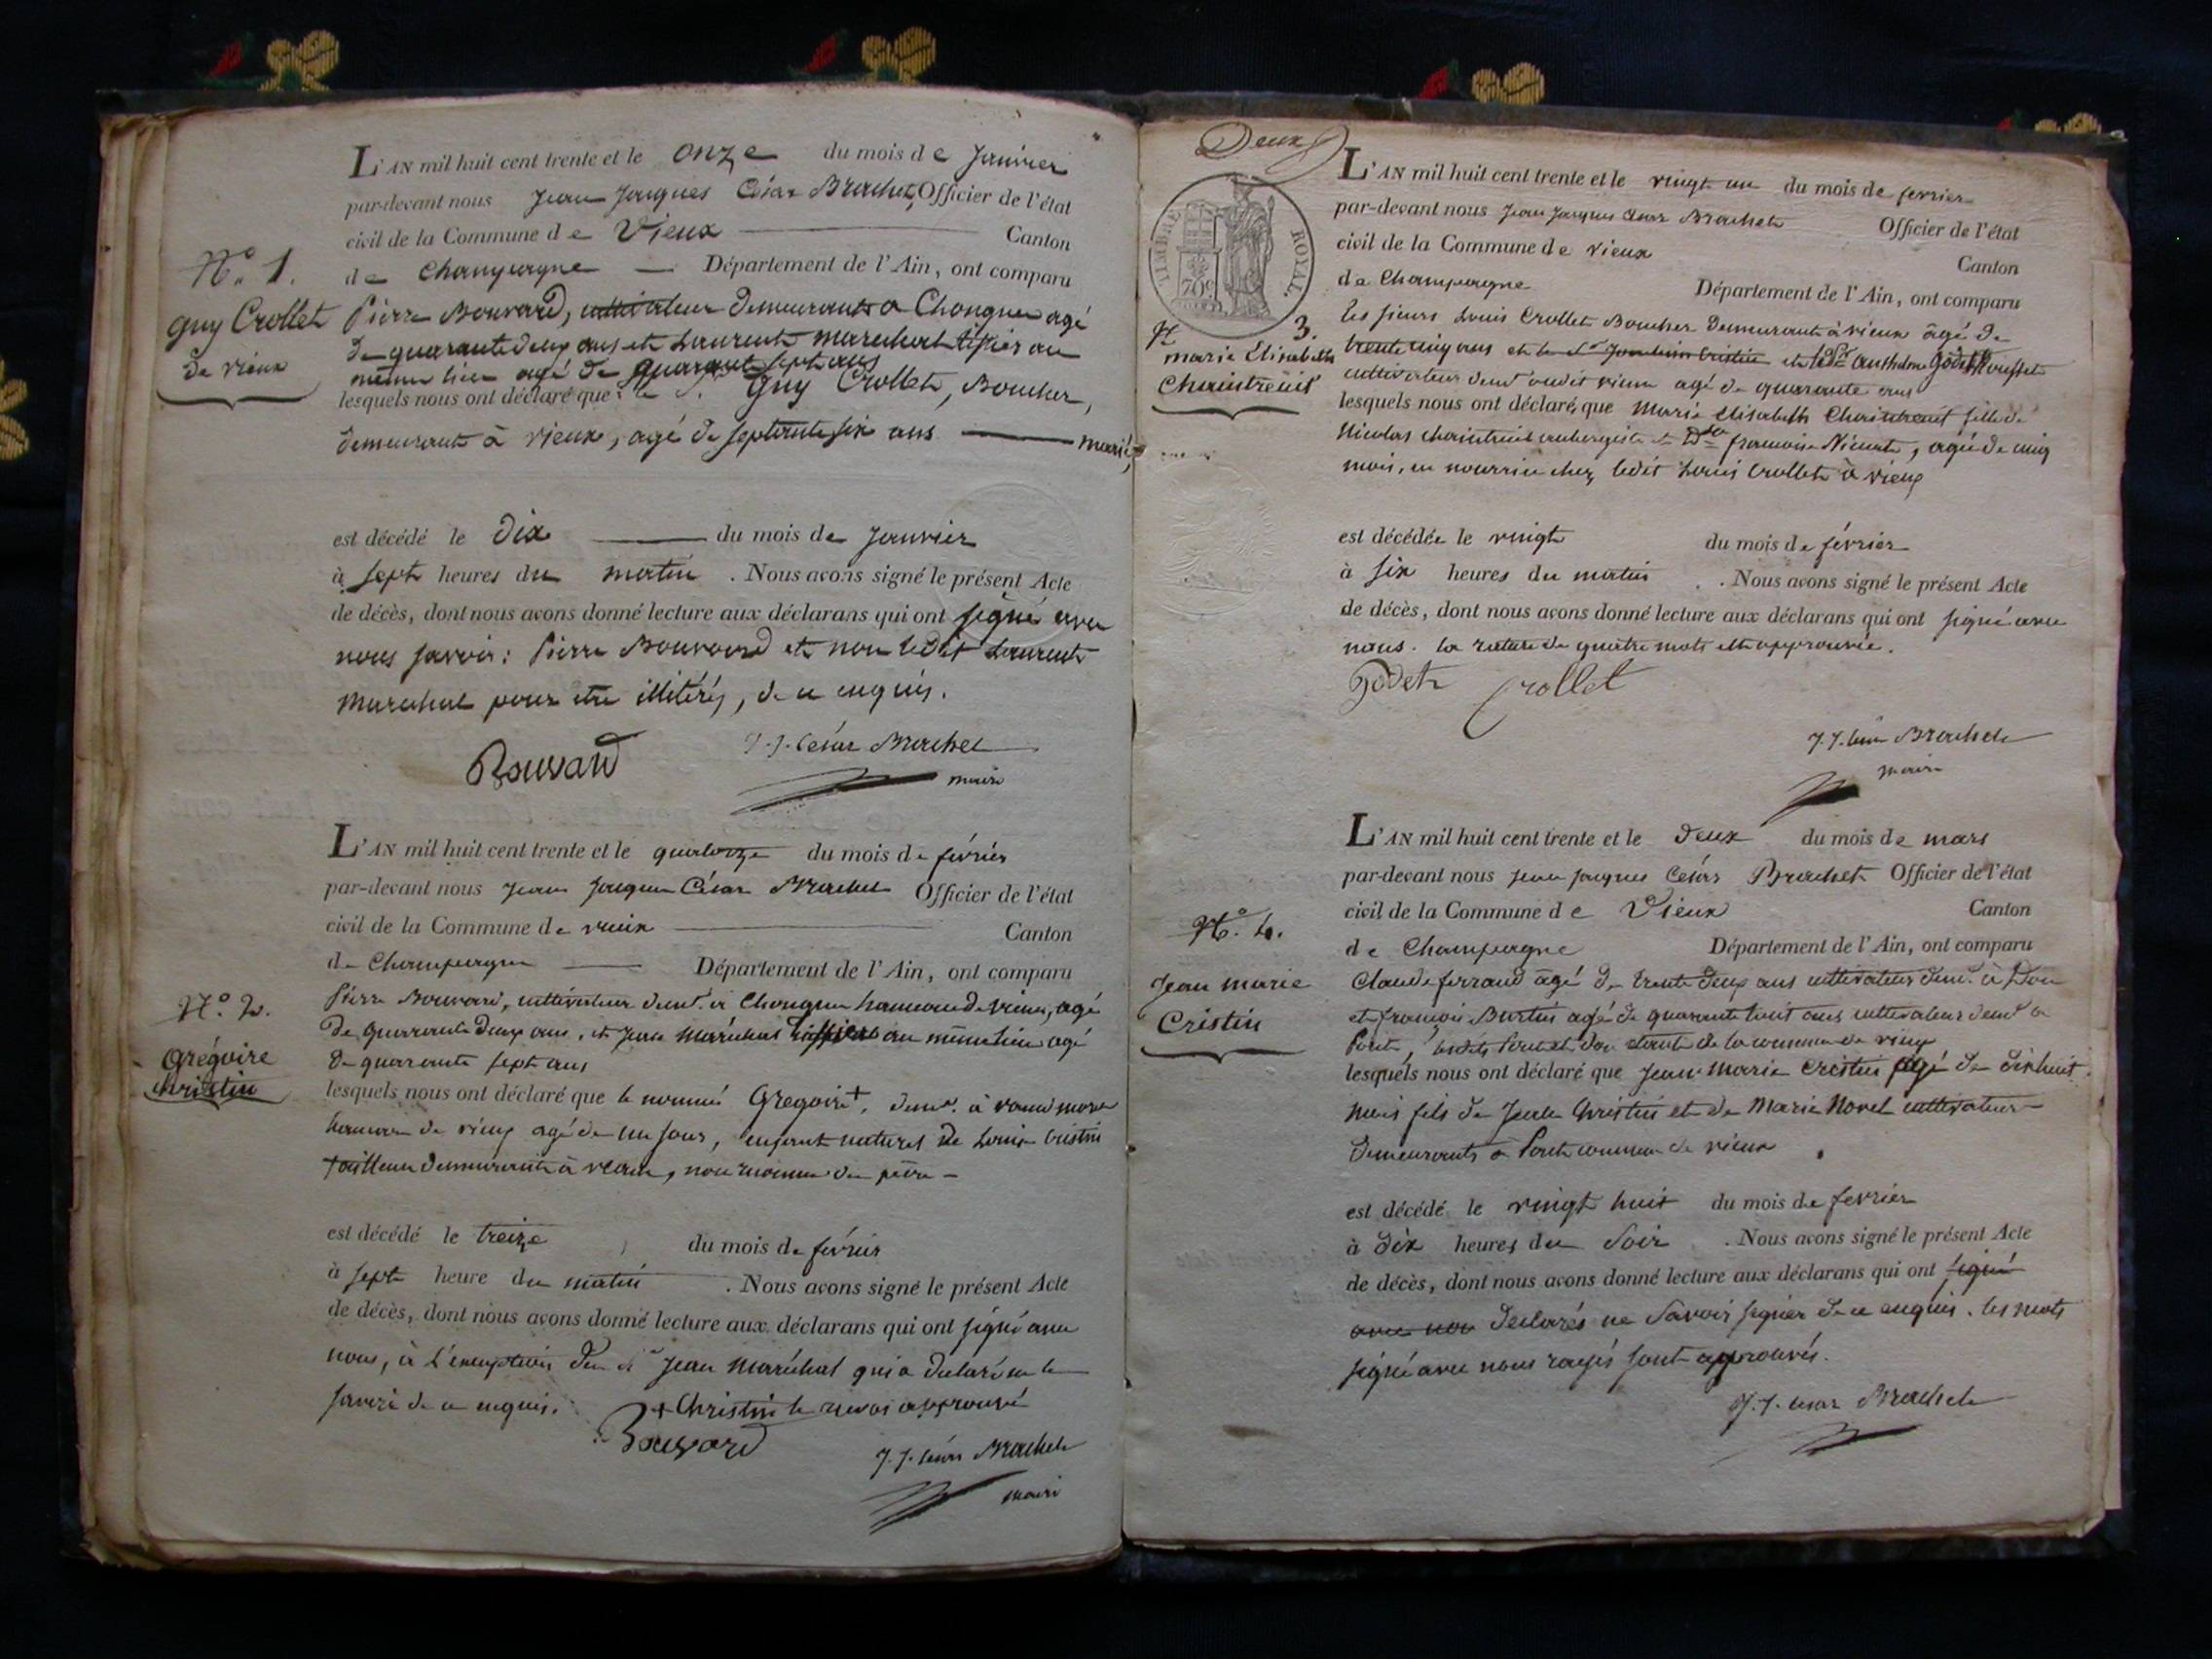 L'AN mil huit cent trente et le onze du mois de Janvier
par-devant nous Jean Jacques César Brachet, Officier de l'état
civil de la Commune de Vieux Canton
de Champagne Département de l'Ain, ont comparu
N.° 1.
Guy Crollet
de vieux
Pierre Bouvard, cultivateur demeurant a Chongnes agé
de quarante deux ans et Laurent marechal tissier au
même lieu agé de quarant sept ans
lesquels nous ont déclaré que le S.r Guy Crollet, Boucher,
demeurant à vieux, agé de septante six ans marié,
est décédé le dix du mois de Janvier
à sept heures du matin . Nous avons signé le présent Acte
de décès, dont nous avons donné lecture aux déclarans qui ont signé avec
nous savoir: Pierre Bouvard et non ledit Laurent
Marechal pour etre illitérés, de ce enquis.
Bouvard
J. J. César Brachet
maire
L'AN mil huit cent trente et le quatorze du mois de février
par-devant nous Jean Jacques César Brachet Officier de l'état
civil de la Commune de vieux Canton
de Champagne Département de l'Ain, ont comparu
N.° 2.
Grégoire
Christin
Pierre Bouvard, cultivateur dem.t a Chongnes hameau de vieux, agé
de quarante deux ans, et Jean Maréchal tissier au même lieu agé
de quarante sept ans
lesquels nous ont déclaré que le nommé Gregoire +, dem.t à
hameau de vieux agé de un jour, enfant naturel de Louise Cristin
tailleuse demeurante à vieux, non du père
est décédé le treize du mois de février
à sept heure du matin . Nous avons signé le présent Acte
de décès, dont nous avons donné lecture aux déclarans qui ont signé avec
nous, à l'exception du d.t Jean Maréchal qui a déclaré ne le
savoir de ce enquis. + Christin le renvoi approuvé
Bouvard
J. J. César Brachet
maire
Deux
TIMBRE ROYAL.
70c
L'AN mil huit cent trente et le vingt un du mois de fevrier
par-devant nous Jean Jacques César Brachet Officier de l'état
civil de la Commune de vieux Canton
de Champagne Département de l'Ain, ont comparu
N 3.
marie Elisabeth
Chaintreuil
les sieurs Louis Crollet Boucher demeurant à vieux âgé de
trente cinq ans et le S.r Joachim Cristin et led.S.r Anthelme Godet
cultivateur dem.t audit vieux agé de quarante ans
lesquels nous ont déclaré que Marie Elisabeth Chaintreuil fille de
Nicolas chaintreuil aubergiste et francoise , agée de cinq
mois, en nourrice chez ledit Louis Crollet à vieux
est décédée le vingt du mois de février
à six heures du matin . Nous avons signé le présent Acte
de décès, dont nous avons donné lecture aux déclarans qui ont signé avec
nous. la rature de quatre mots est approuvée.
Godet Crollet
J. J. César Brachet
maire
L'AN mil huit cent trente et le deux du mois de mars
par-devant nous jean jacques César Brachet Officier de l'état
civil de la Commune de Vieux Canton
de Champagne Département de l'Ain, ont comparu
N.° 4.
Jean marie
Cristin
Claude ferrand âgé de trente deux ans cultivateur dem.t à Don
et françois Burtin agé de quarante huit ans cultivateur dem.t a
Pont, lesdits Pont et don etant de la commune de vieux
lesquels nous ont déclaré que Jean Marie Cristin agé de dix huit
mois fils de Christin et de Marie Novel cultivateur
demeurants a Pont commune de vieux
est décédé le vingt huit du mois de fevrier
à dix heures du soir . Nous avons signé le présent Acte
de décès, dont nous avons donné lecture aux déclarans qui ont signé
avec nou déclarés ne savoir signer de ce enquis. les mots
signé avec nous rayés sont approuvés.
J. J. César Brachet